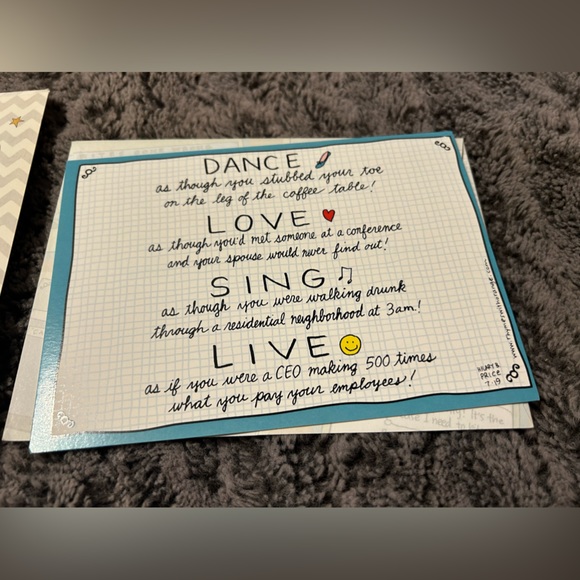 DANCE
as though you stubbed your toe
on the leg of the coffee table!
LOVE
as though you'd met someone at a conference
and your spouse would never find out!
SING
as though you were walking drunk
through a residential neighborhood at 3am!
LIVE
as if you were a CEO making 500 times
what you pay your employees!
PRICE
7.19
It's the
I need to